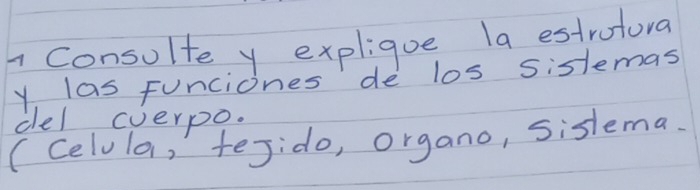 1 Consulte y explique la estrutura
y las funciones de los sistemas
del cuerpo.
( Celula, tejido, organo, sistema.